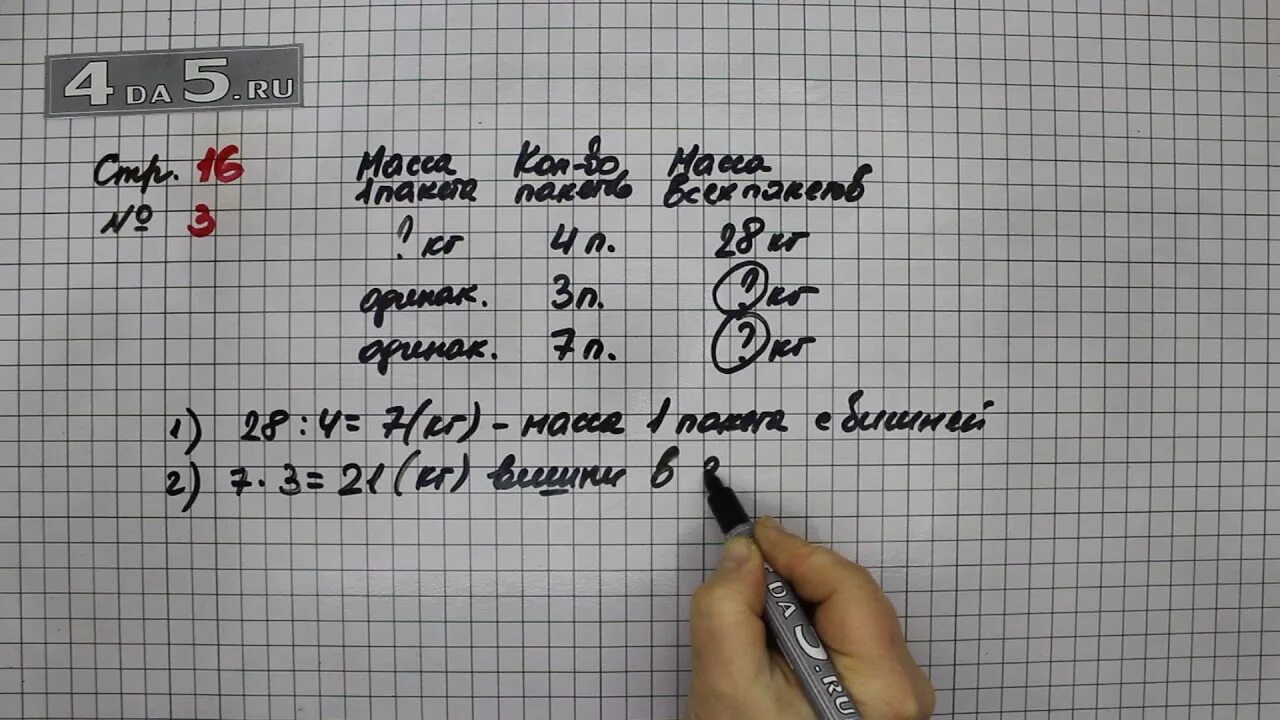 4 DA 5.RU
Стр. 16
№ 3
Масса Кол-во Масса
1 пакета пакетов всех пакетов
? кг 4 п. 28 кг
одинак. 3 п. ? кг
одинак. 7 п. ? кг
1) 28 : 4 = 7 (кг) – масса 1 пакета с вишней
2) 7 · 3 = 21 (кг) вишни в
DA 5.RU